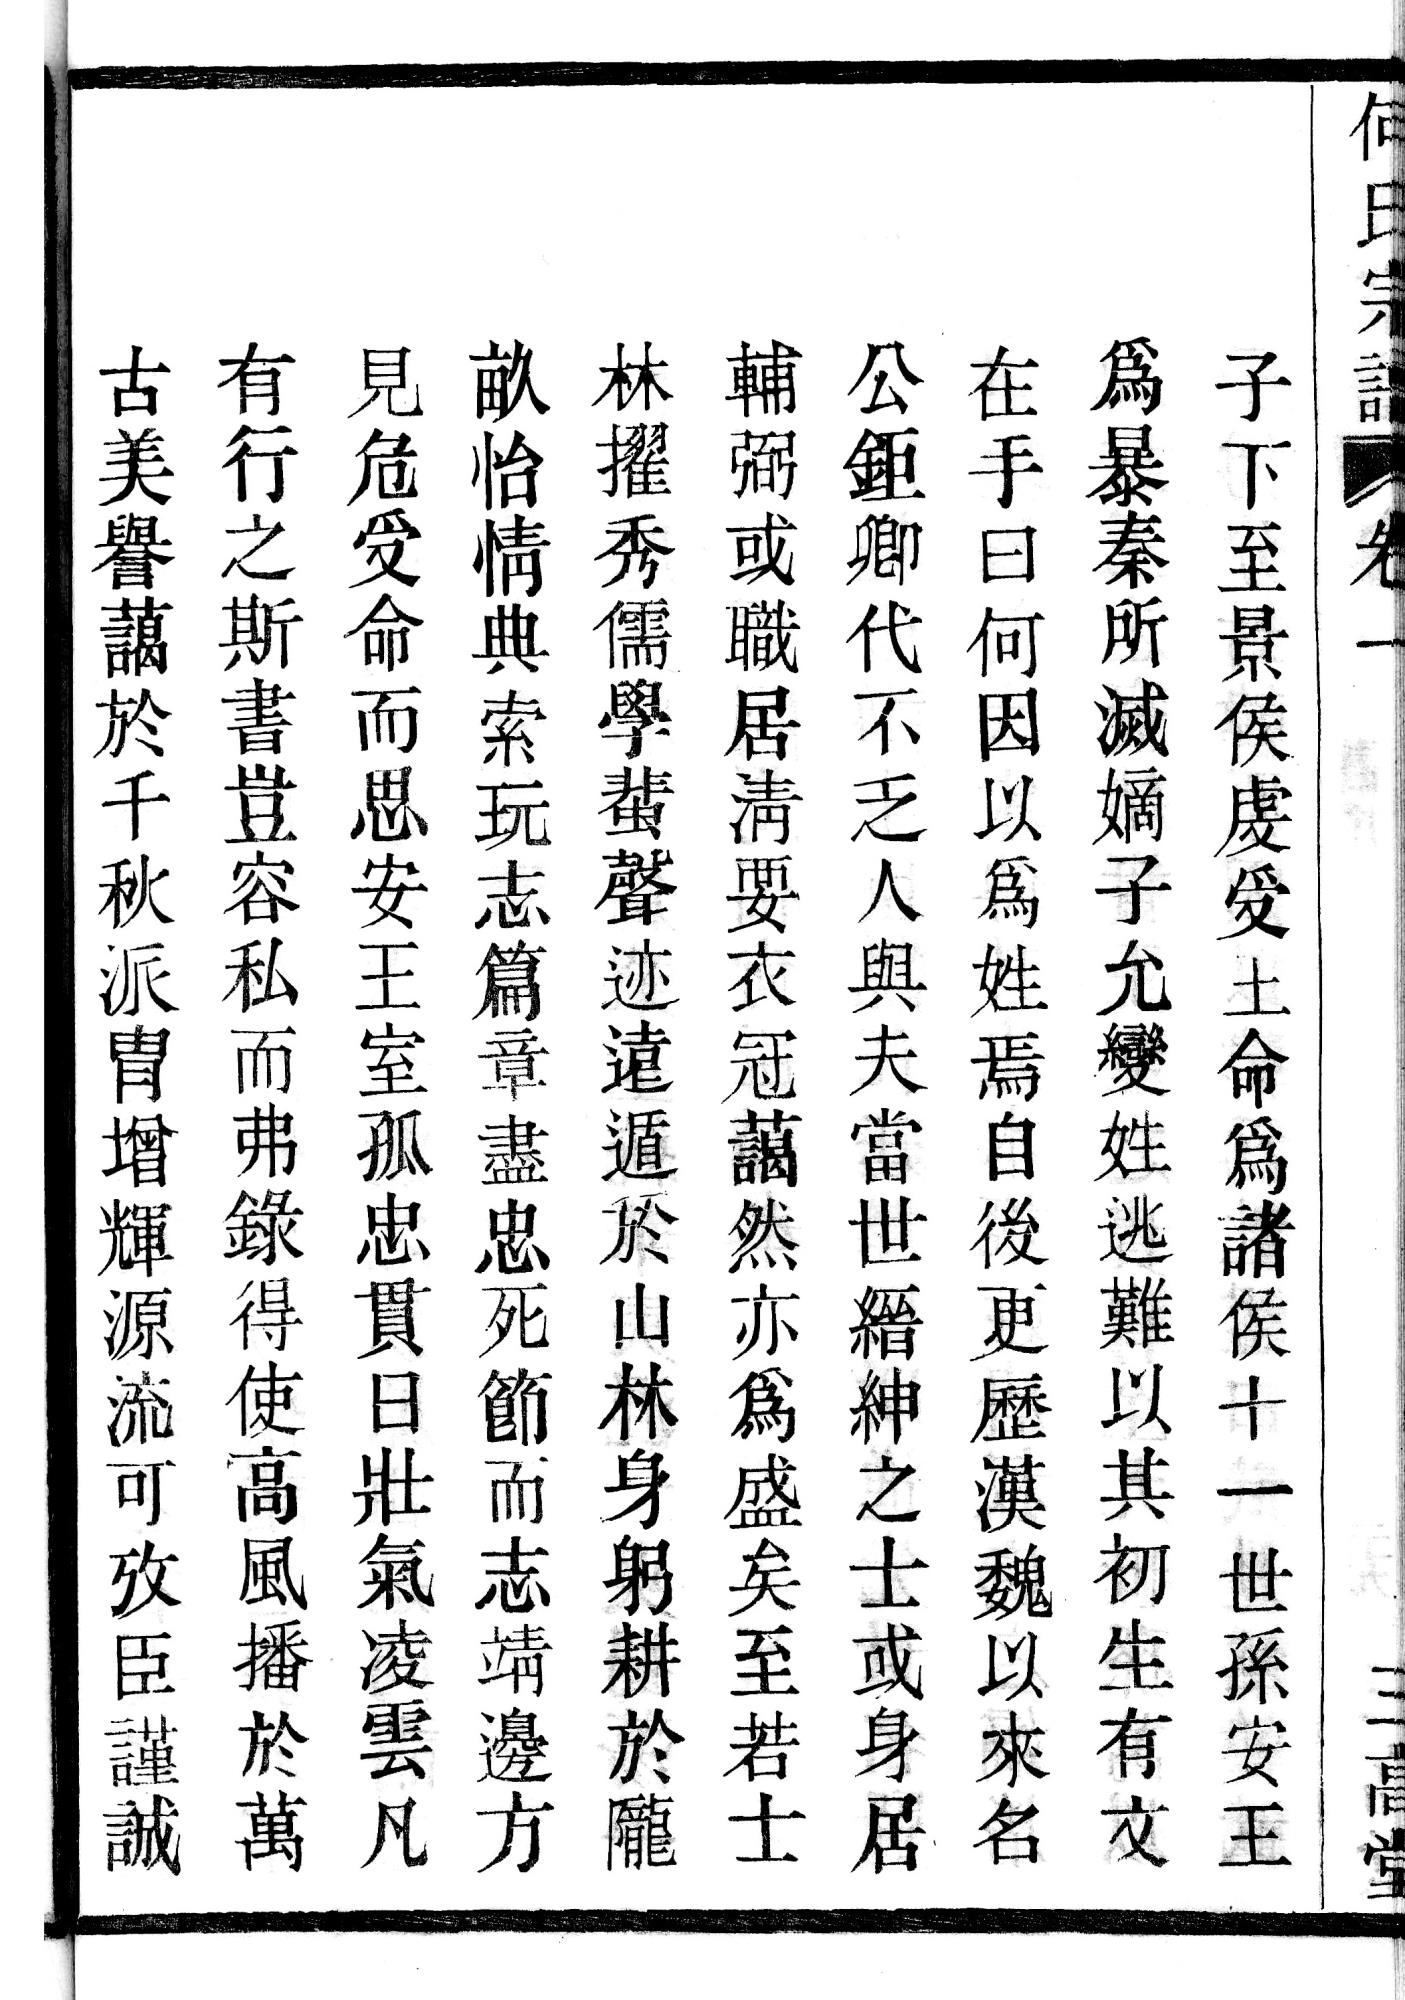 何氏宗譜 卷一 三高堂
子下至景侯虔受土命爲諸侯十一世孫安王
爲暴秦所滅嫡子允變姓逃難以其初生有文
在手曰何因以爲姓焉自後更歷漢魏以來名
公鉅卿代不乏人與夫當世縉紳之士或身居
輔弼或職居淸要衣冠藹然亦爲盛矣至若士
林擢秀儒學蜚聲迹遠遁於山林身躬耕於隴
畝怡情典索玩志篇章盡忠死節而志靖邊方
見危受命而思安王室孤忠貫日壯氣凌雲凡
有行之斯書豈容私而弗錄得使高風播於萬
古美譽藹於千秋派胄增輝源流可攷臣謹誠